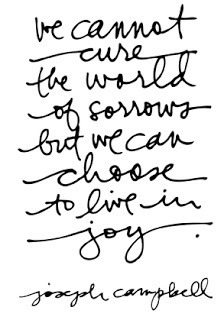 we cannot
cure
the world
of sorrows
but we can
choose
to live in
joy.
joseph campbell